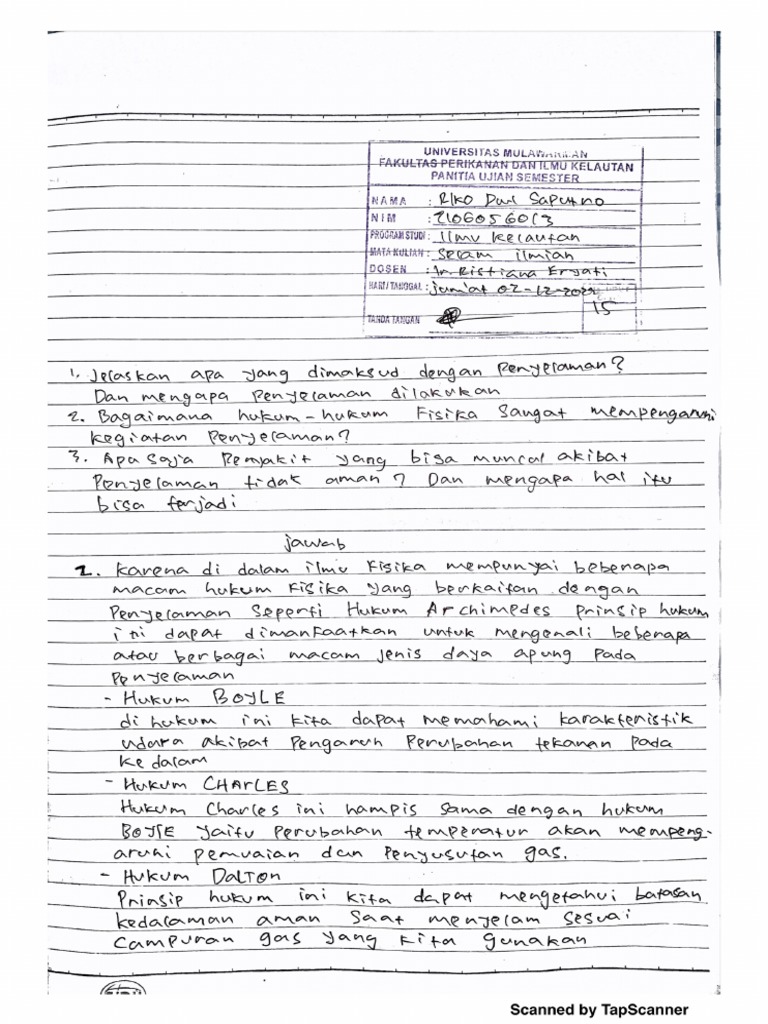 UNIVERSITAS MULAWARMAN
FAKULTAS PERIKANAN DAN ILMU KELAUTAN
PANITIA UJIAN SEMESTER
NAMA : Riko Dwi Saputro
NIM : 2106056013
PROGRAM STUDI : Ilmu Kelautan
MATA KULIAH : Selam ilmiah
DOSEN : Ir. Ristiana Eryati
HARI / TANGGAL : Jum'at 02-12-2022
15
TANDA TANGAN
1. Jelaskan apa yang dimaksud dengan Penyelaman?
Dan mengapa Penyelaman dilakukan
2. Bagaimana hukum-hukum Fisika Sangat mempengaruhi
kegiatan Penyelaman?
3. Apa Saja Penyakit yang bisa muncul akibat
Penyelaman tidak aman? Dan mengapa hal itu
bisa terjadi
jawab
2. Karena di dalam ilmu Fisika mempunyai beberapa
macam hukum Fisika yang berkaitan dengan
Penyelaman Seperti Hukum Archimedes prinsip hukum
ini dapat dimanfaatkan untuk mengenali beberapa
atau berbagai macam jenis daya apung pada
Penyelaman
- Hukum BOYLE
di hukum ini kita dapat memahami karakteristik
udara akibat Pengaruh Perubahan tekanan Pada
ke dalam
- Hukum CHARLES
Hukum Charles ini hampis sama dengan hukum
BOYLE yaitu perubahan temperatur akan mempeng-
aruhi pemuaian dan Penyusutan gas.
- Hukum DALTON
Prinsip hukum ini kita dapat mengetahui batasan
kedalaman aman Saat menyelam Sesuai
Campuran gas yang kita gunakan
Scanned by TapScanner